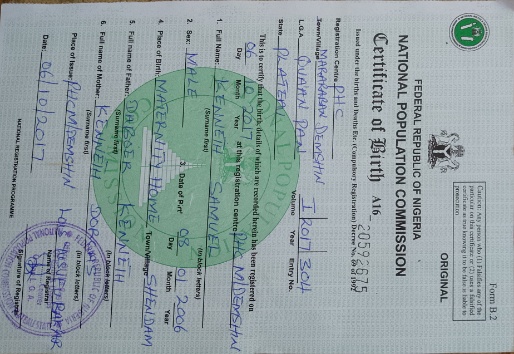 Form B.2
Caution: Any person who (1) Falsifies any of the
particular on this certificate or (2) uses a falsified
certificate as true knowing it to be false is liable to
prosecution
ORIGINAL
FEDERAL REPUBLIC OF NIGERIA
NATIONAL POPULATION COMMISSION
Certificate of Birth A16
Issued under the births and Deaths Etc. (Compulsory Registration) Decree No. 69 of 1992
Registration Centre PHC
Town/Village MABARABAN DEMSHIN
L.G.A. QUHAN PAN Volume I Year 2017 Entry No. 304
State PLATEAU
This is to certify that the birth, details of which are recorded herein has been registered on
06 10 2017 at this registration centre PHC M/DEMSHIN
Day Month Year
1. Full Name: KENNETH SAMUEL
(Surname first) (In block letters)
2. Sex: MALE 3. Date of Birth 08 01 2006
Day Month Year
4. Place of Birth: MATERNITY HOME Town/Village SHENDAM
5. Full name of Father: KENNETH
(Surname first) (In block letters)
6. Full name of Mother: KENNETH
(Surname first) (In block letters)
Place of Issue: PHC M/DEMSHIN
Name of Registrar
Date: 06/10/2017
Signature of Registrar
NATIONAL REGISTRATION PROGRAMME